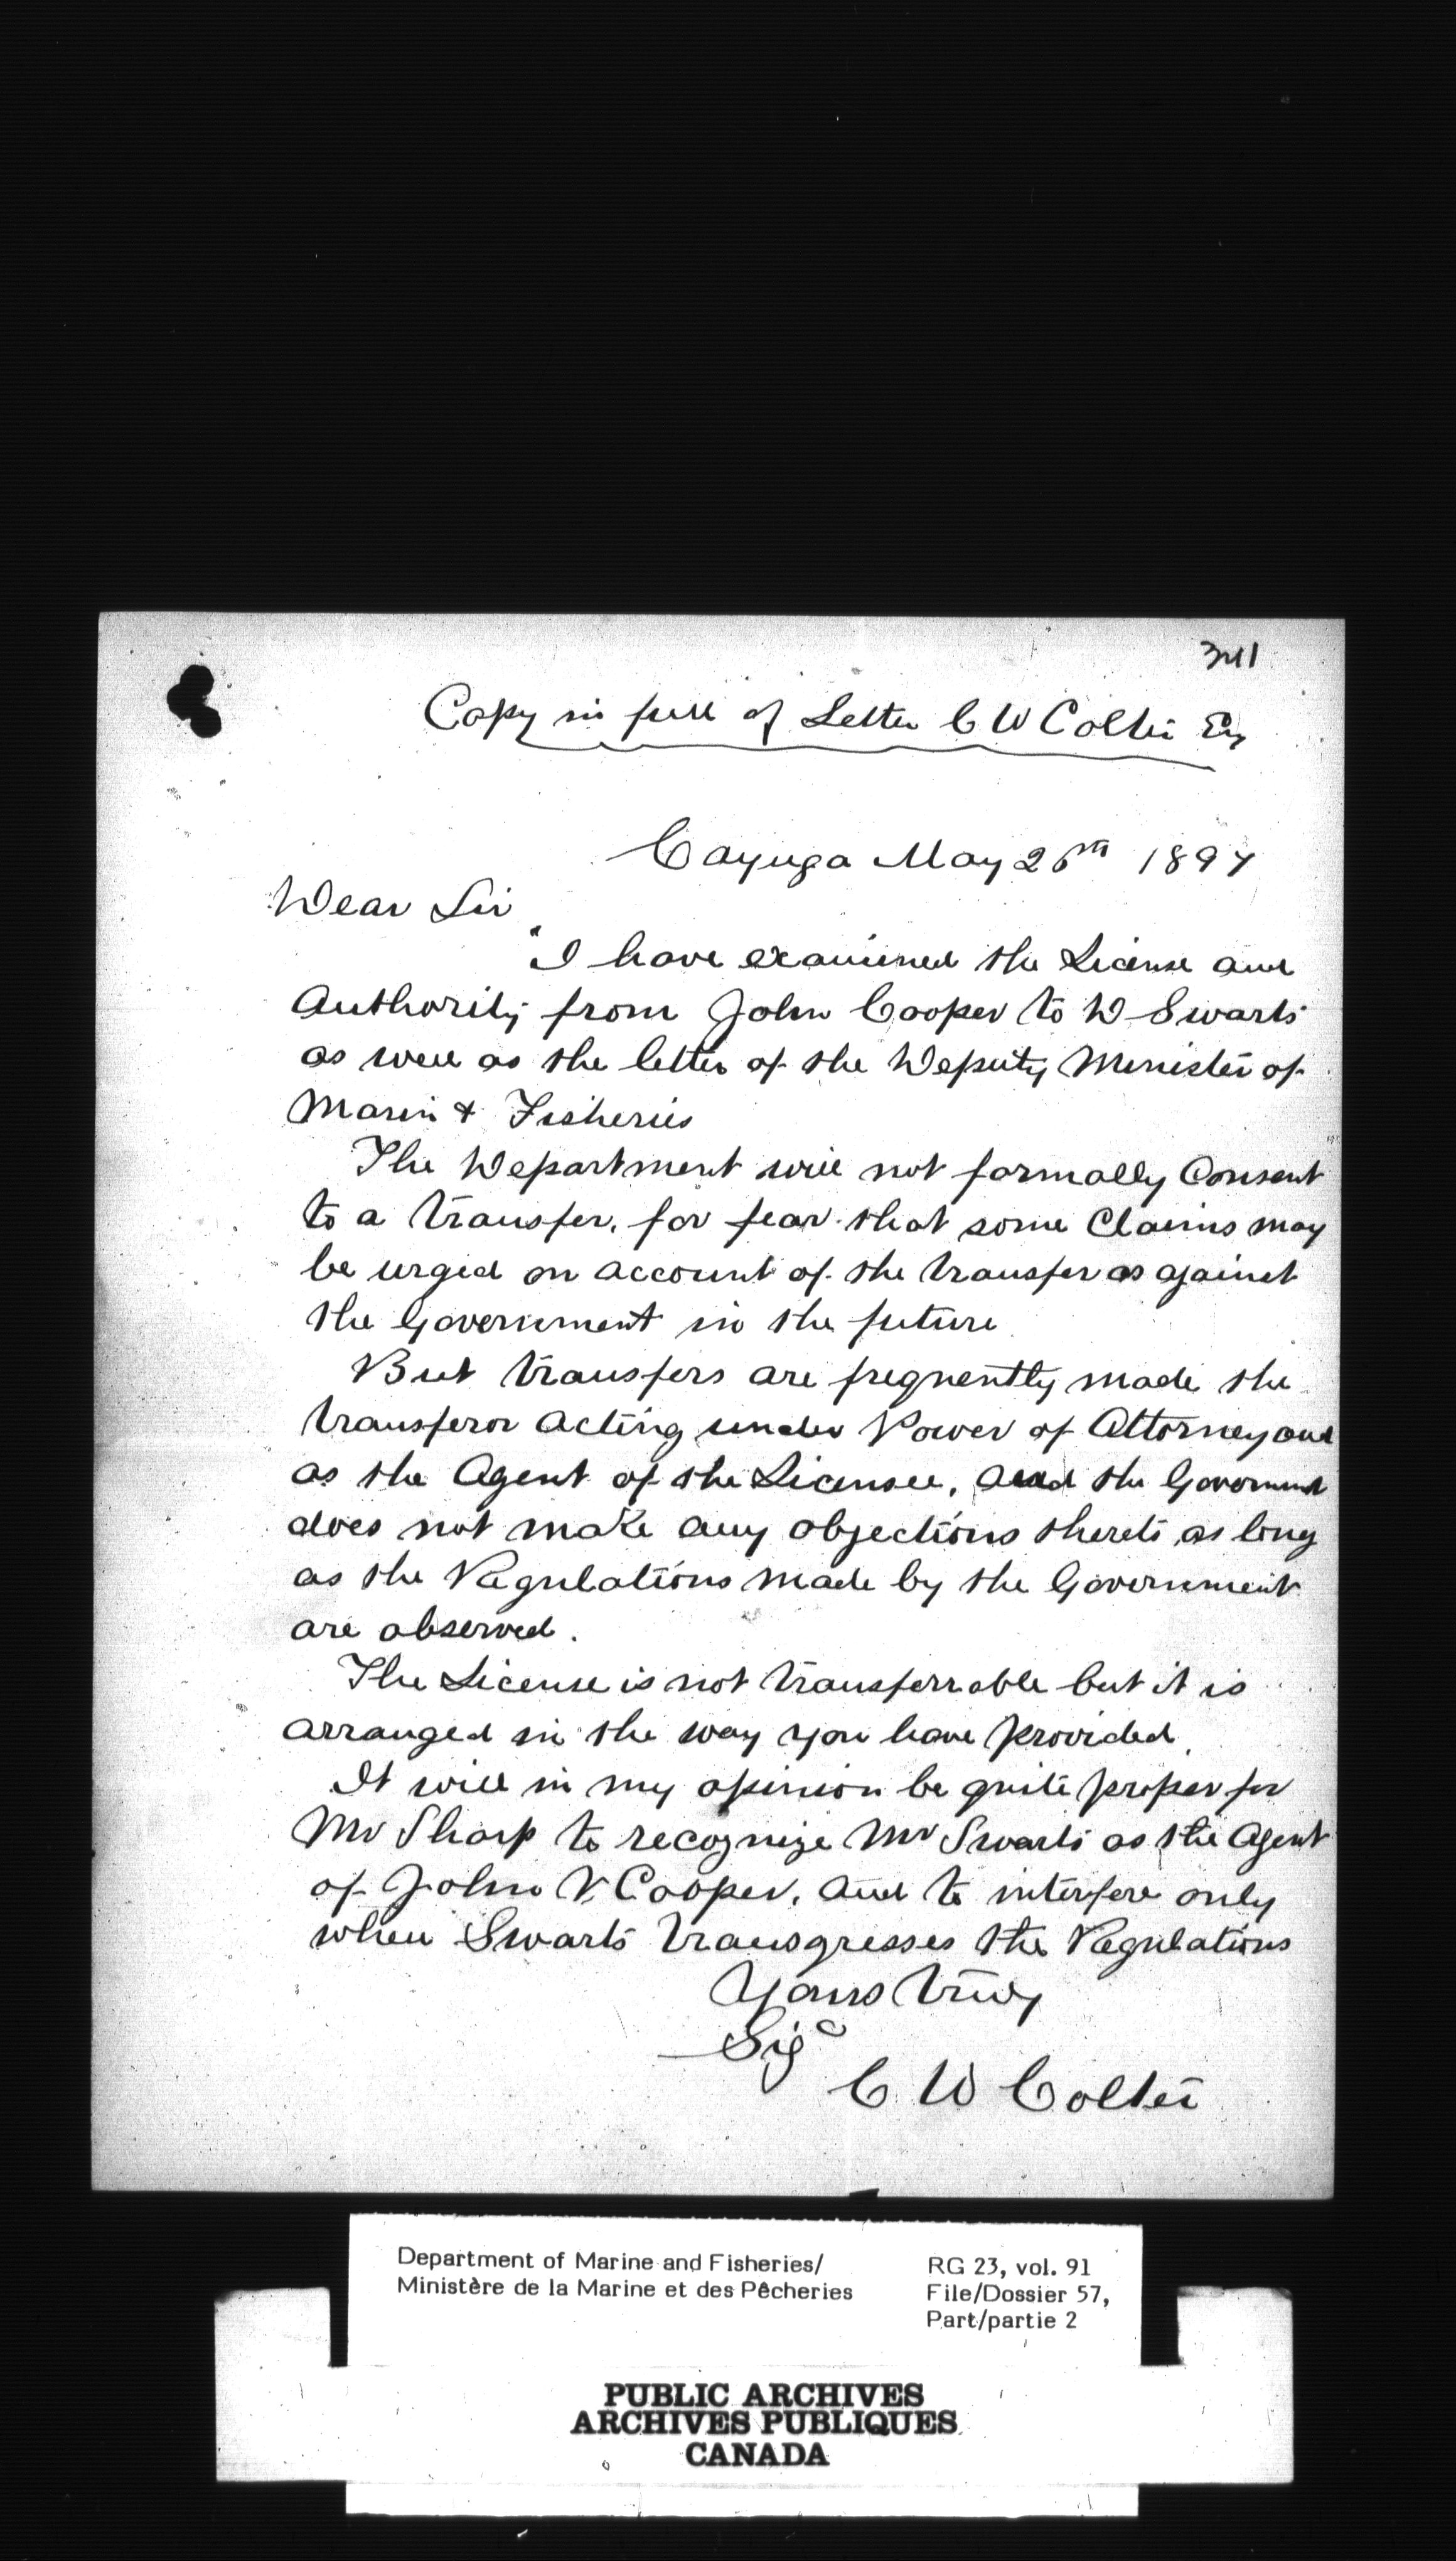 341
Copy in full of Letter C W Colter Esq
Cayuga May 26th 1897
Dear Sir
"I have examined the License and
Authority from John Cooper to W Swarts
as well as the letter of the Deputy Minister of
Marin & Fisheries
The Department will not formally Consent
to a transfer, for fear that some Claims may
be urged on account of the transfer as against
the Government in the future
But transfers are frequently made the
transferor acting under Power of Attorney and
as the Agent of the Licensee, and the Government
does not make any objections thereto as long
as the Regulations made by the Government
are observed.
The License is not transferrable but it is
arranged in the way you have provided.
It will in my opinion be quite proper for
Mr Sharp to recognize Mr Swarts as the Agent
of John V. Cooper, and to interfere only
when Swarts transgresses the Regulations
Yours truly
Sigd
C W Colter
Department of Marine and Fisheries/
Ministère de la Marine et des Pêcheries
RG 23, vol. 91
File/Dossier 57,
Part/partie 2
PUBLIC ARCHIVES
ARCHIVES PUBLIQUES
CANADA